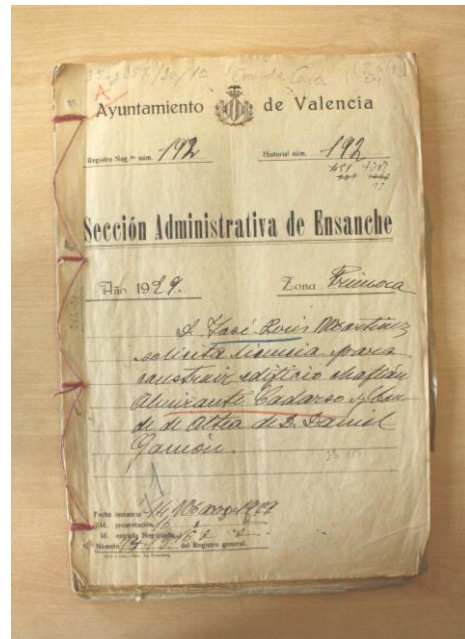 Ayuntamiento de Valencia
Registro Neg.º núm. 192 Historial núm. 192
Sección Administrativa de Ensanche
Año 1929. Zona Primera
D. José Luis Martínez
solicita licencia para
construir edificio chaflán
Almirante Cadarso y Con
de de Altea de D. Daniel
Fecha instancia 14 Marzo 1929
Id. presentación 16
Id. entrada Negociado 16
Número del Registro general.